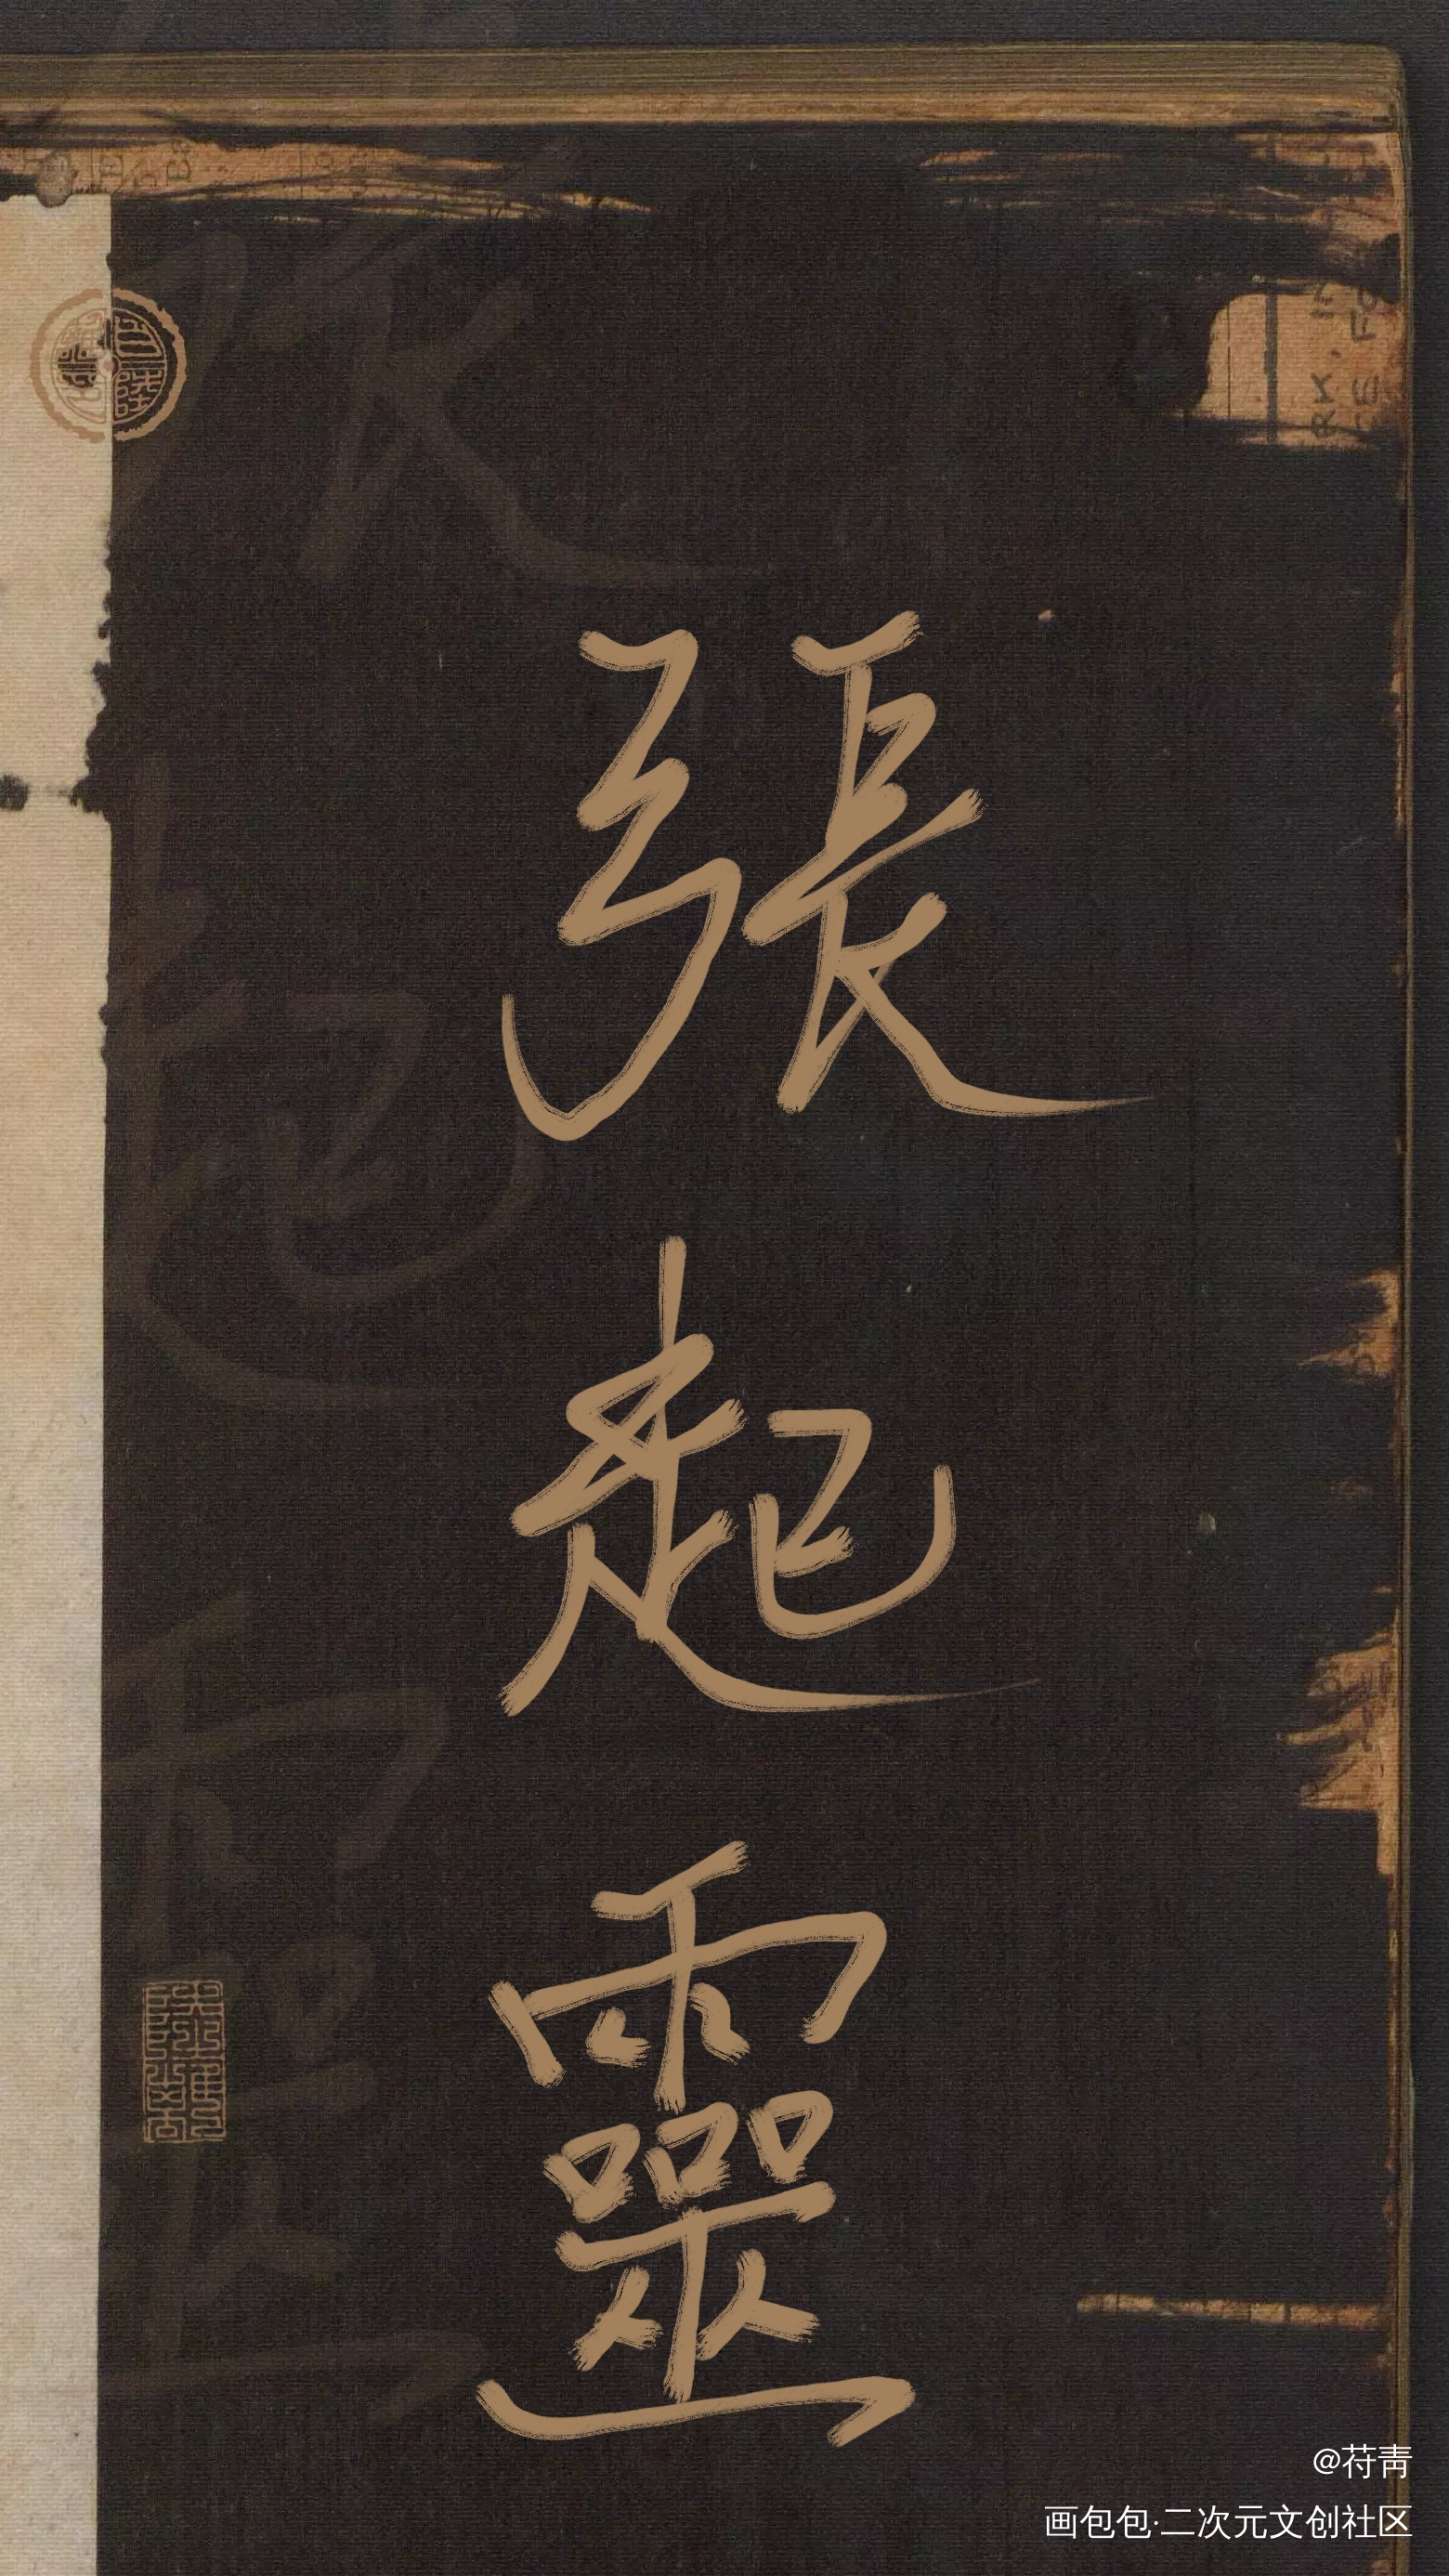 張起靈
@苻靑
画包包·二次元文创社区